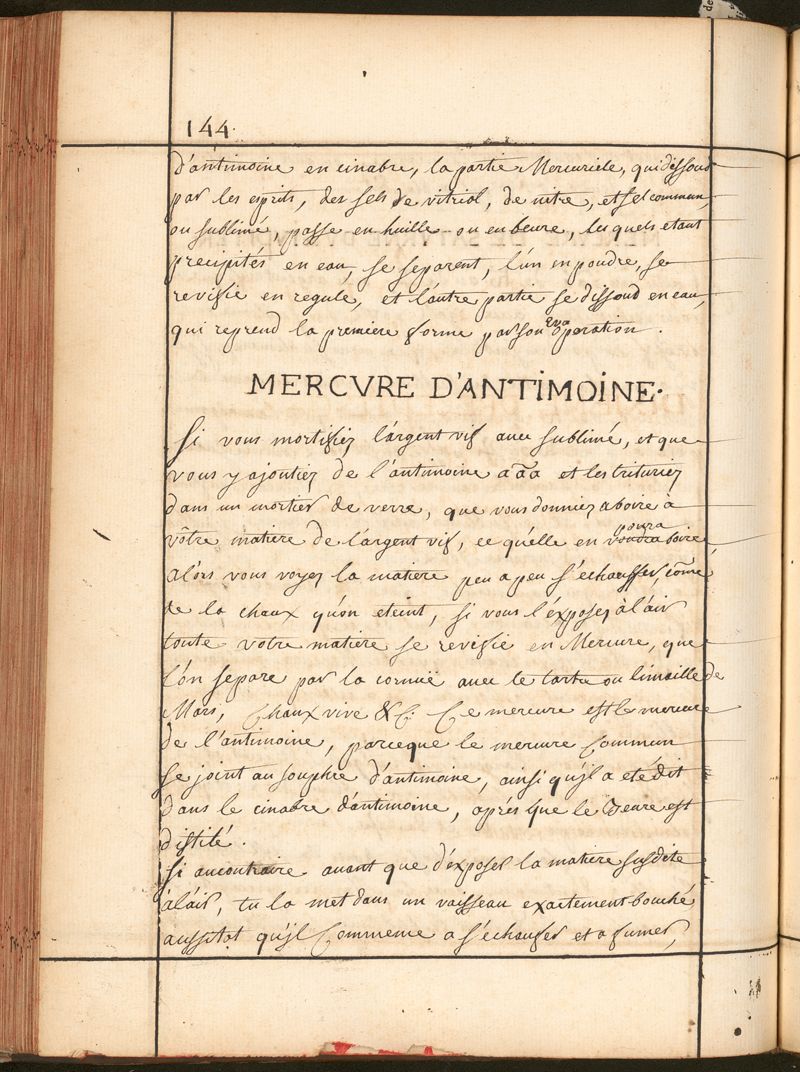 144.
d'antimoine en cinabre, la partie Mercuriele, qui dissoud
par les esprits, des sels de vitriol, de nitre, et sel commun,
ou sublimé, passe en huille ou en beure, les quels etant
precipités en eau, se separent, l'un en poudre, se
revifie en regule, et l'autre partie se dissoud en eau,
qui reprend la premiere forme par son Evaoperation.
MERCVRE D'ANTIMOINE.
Si vous mortifiez l'argent vif avec sublimé, et que
vous y ajoutiez de l'antimoine aãa et les trituriez
dans un mortier de verre, que vous donniez a boire à
vôtre matiere de l'argent vif, ce qu'elle en voudra poura boire
alors vous voyez la matiere peu a peu s'echauffer cõme
de la chaux qu'on eteint, si vous l'éxposez à l'air
toute votre matiere se revifie en Mercure, que
l'on separe par la cornuë avec le tartre ou limaille de
Mars, Chaux vive &C. Ce mercure est le mercure
de l'antimoine, parceque le mercure Commun
se joint au souphre d'antimoine, ainsi qu'jl a eté dit
dans le cinabre d'antimoine, aprés que le Beure est
distilé.
Si aucontraire avant que d'exposer la matiere susdite
a l'air, tu la met dans un vaisseau exactement bouché
aussitot qu'jl Commence a s'echaufer et a fumer,